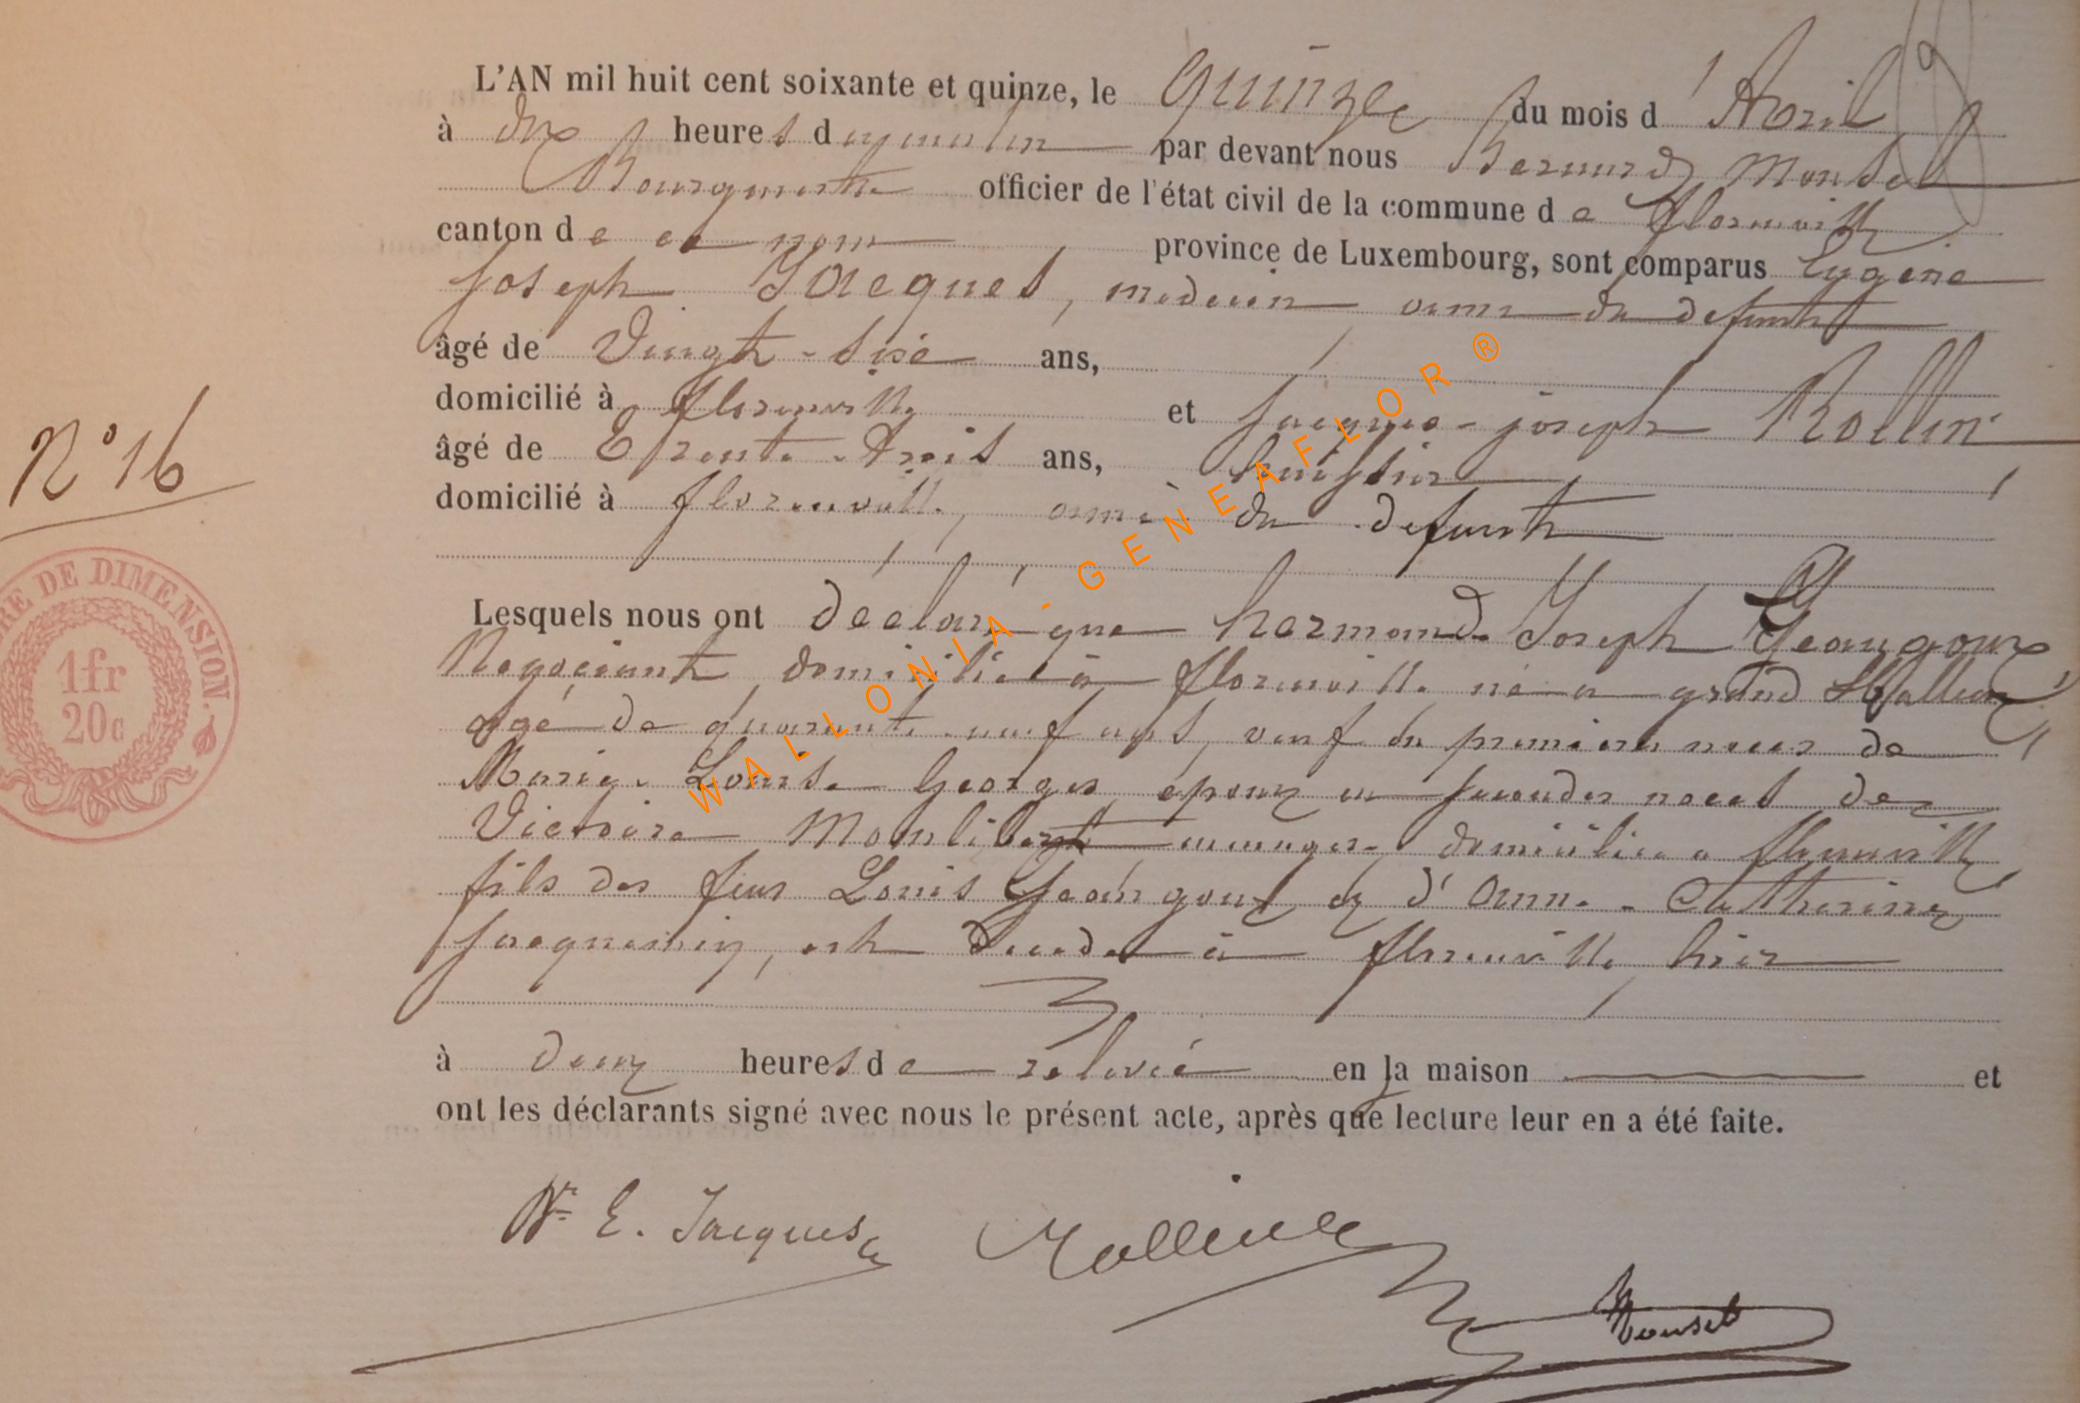 L'AN mil huit cent soixante et quinze, le quinze du mois d'Avril
à dix heures du matin par devant nous Bernard Mousel
Bourgmestre officier de l'état civil de la commune de florenville
canton de ce nom province de Luxembourg, sont comparus Eugene
Joseph Jacques, medecin ami du defunt
âgé de Vingt-six ans,
domicilié à florenville et Jacques-joseph Rollin
âgé de Trente-trois ans, huissier
domicilié à florenville, ami du defunt
N° 16
TIMBRE DE DIMENSION.
1fr
20c
Lesquels nous ont déclaré que hermand Joseph Geangoux
Negociant domicilié à florenville né a grand
agé de quarante neuf ans, veuf en premieres noces de
Marie-Louise Georges, epoux en secondes noces de
Victoire Monlibert menagere domiciliee a florenville
fils des feus Louis Geangoux et d'Anne-Catherine
Jacquemin, est decedé à florenville hier
à deux heures de relevée en la maison et
ont les déclarants signé avec nous le présent acte, après que lecture leur en a été faite.
E. Jacques Rollin
Mousel
WALLONIA-GENEAFLOR®